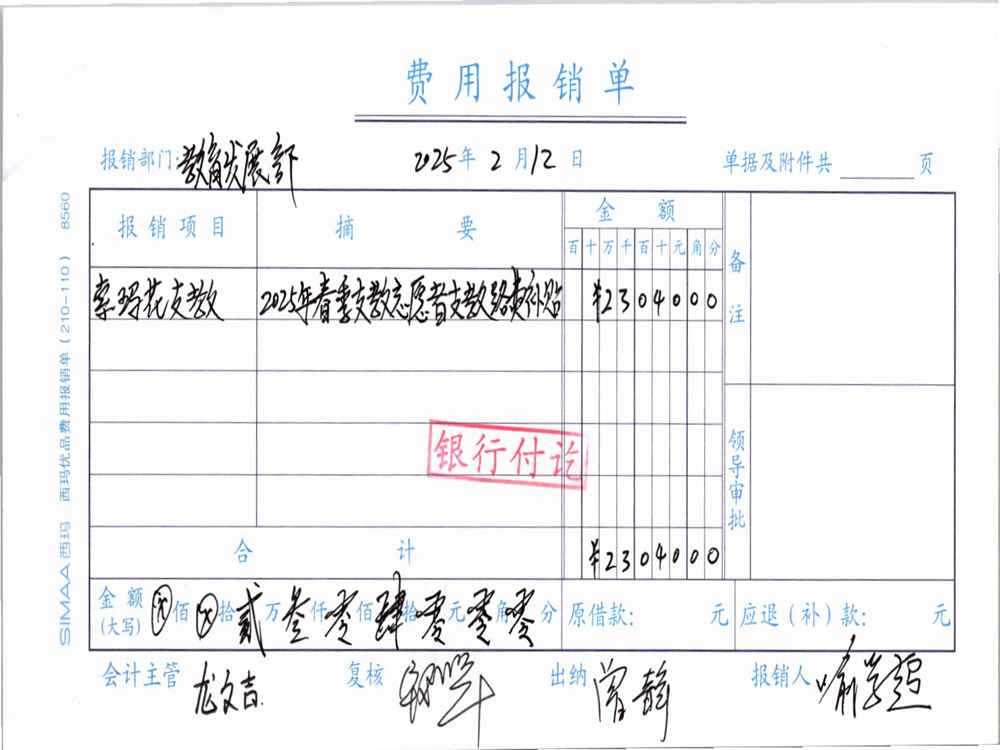 费用报销单
报销部门:教育发展部 2025年2月12日 单据及附件共 页
报销项目 摘要 金额 备注
百十万千百十元角分
索玛花支教 2025年春季支教志愿者支教路费补贴 ¥2304000
银行付讫
领导审批
合计 ¥2304000
金额(大写) ⊗佰⊗拾贰万叁仟零佰肆拾零元零角零分 原借款: 元 应退(补)款: 元
会计主管 龙文吉 复核 出纳 曾静 报销人
SIMAA西玛 西玛优品费用报销单(210-110) 8560